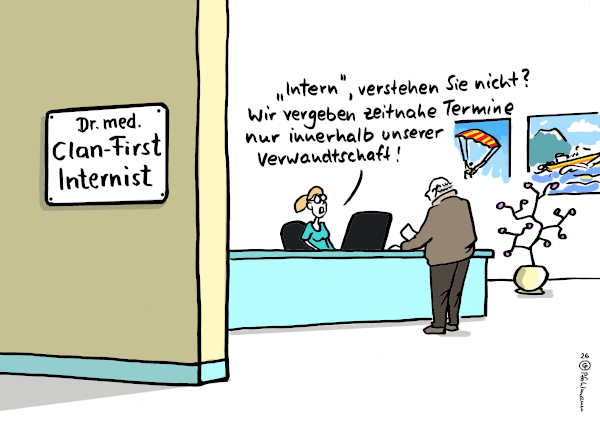 Dr. med.
Clan-First
Internist
„Intern", verstehen Sie nicht?
Wir vergeben zeitnahe Termine
nur innerhalb unserer
Verwandtschaft!
26